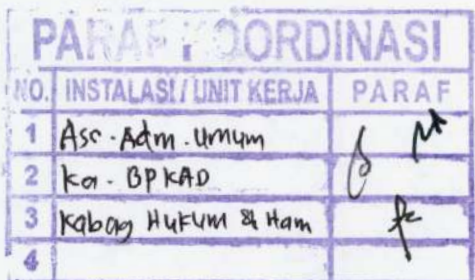 PARAF KOORDINASI
NO. INSTALASI / UNIT KERJA PARAF
1 Ass. Adm. Umum
2 Ka. BPKAD
3 Kabag Hukum & Ham
4